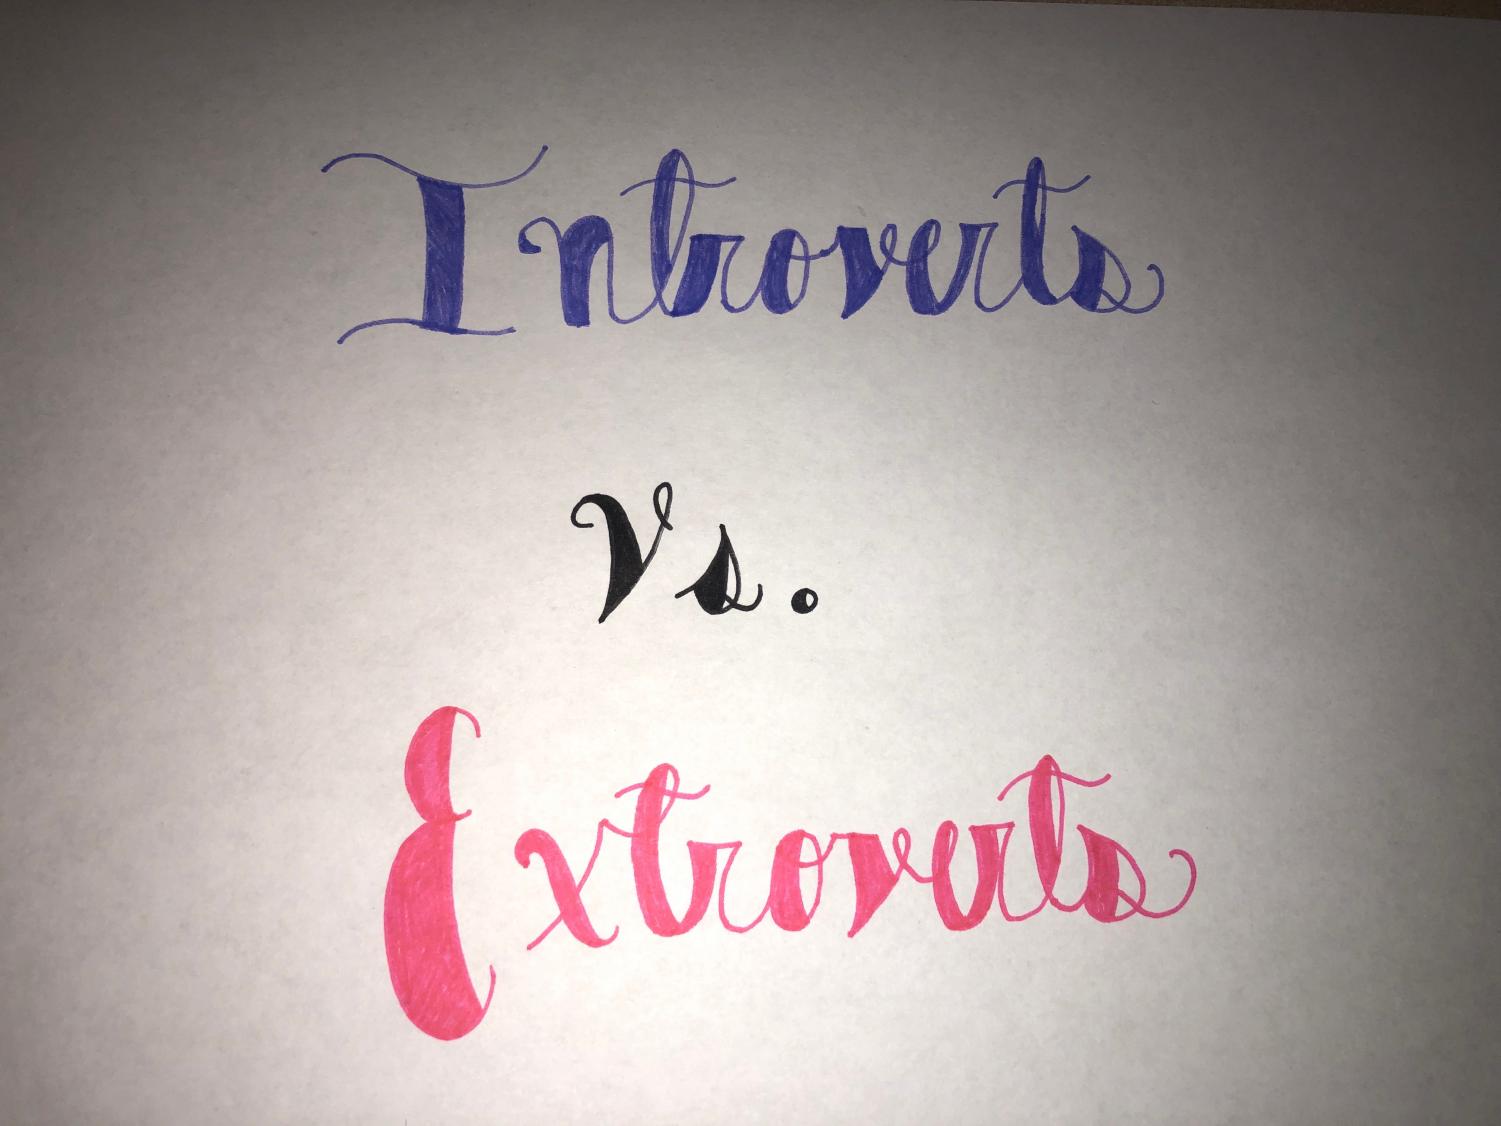 Introverts
Vs.
Extroverts